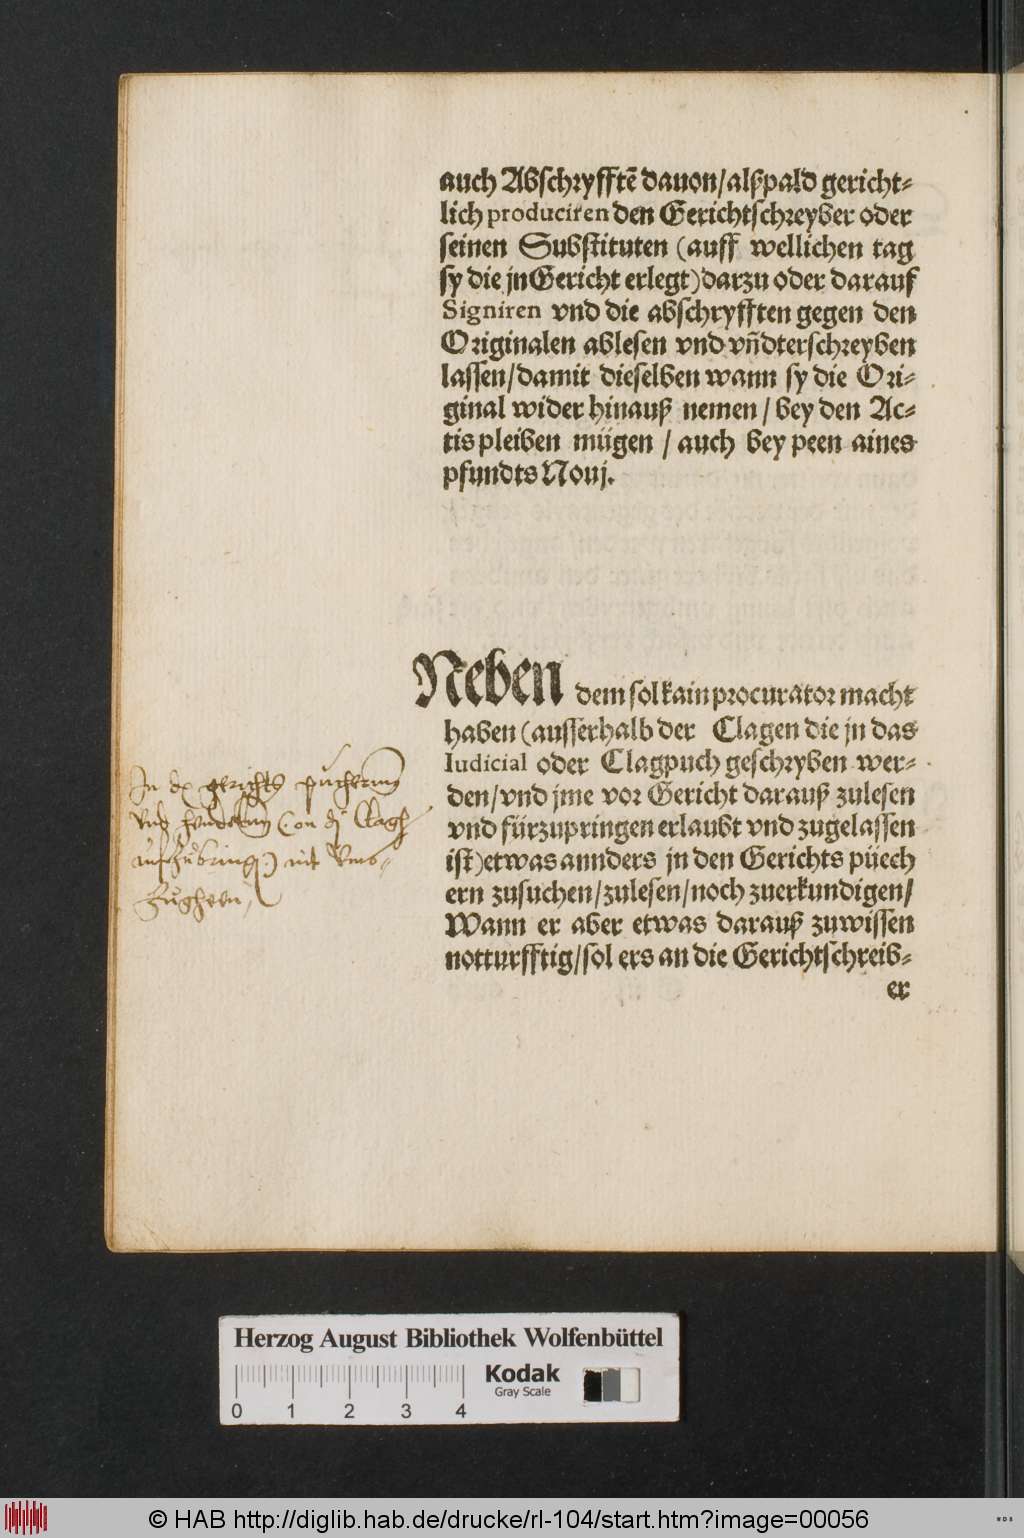 auch Abschryfftē dauon/alßpald gericht⸗
lich produciren den Gerichtschreyber oder
seinen Substituten (auff wellichen tag
sy die jn Gericht erlegt) darzu oder darauf
Signiren vnd die abschryfften gegen den
Originalen ablesen vnd vñdterschreyben
lassen/damit dieselben wann sy die Ori⸗
ginal wider hinauß nemen / bey den Ac⸗
tis pleiben mügen / auch bey peen aines
pfundts Nouj.
Neben dem sol kain procurator macht
haben (ausserhalb der Clagen die jn das
Iudicial oder Clagpuch geschryben wer⸗
den/vnd jme vor Gericht darauß zulesen
vnd fürzupringen erlaubt vnd zugelassen
ist) etwas annders jn den Gerichts püech
ern zusuchen/zulesen/noch zuerkundigen/
Wann er aber etwas darauß zuwissen
notturfftig/sol ers an die Gerichtschreib⸗
er
In gerichts puchern
Clag
nit
Herzog August Bibliothek Wolfenbüttel
Kodak
Gray Scale
0 1 2 3 4
© HAB http://diglib.hab.de/drucke/rl-104/start.htm?image=00056